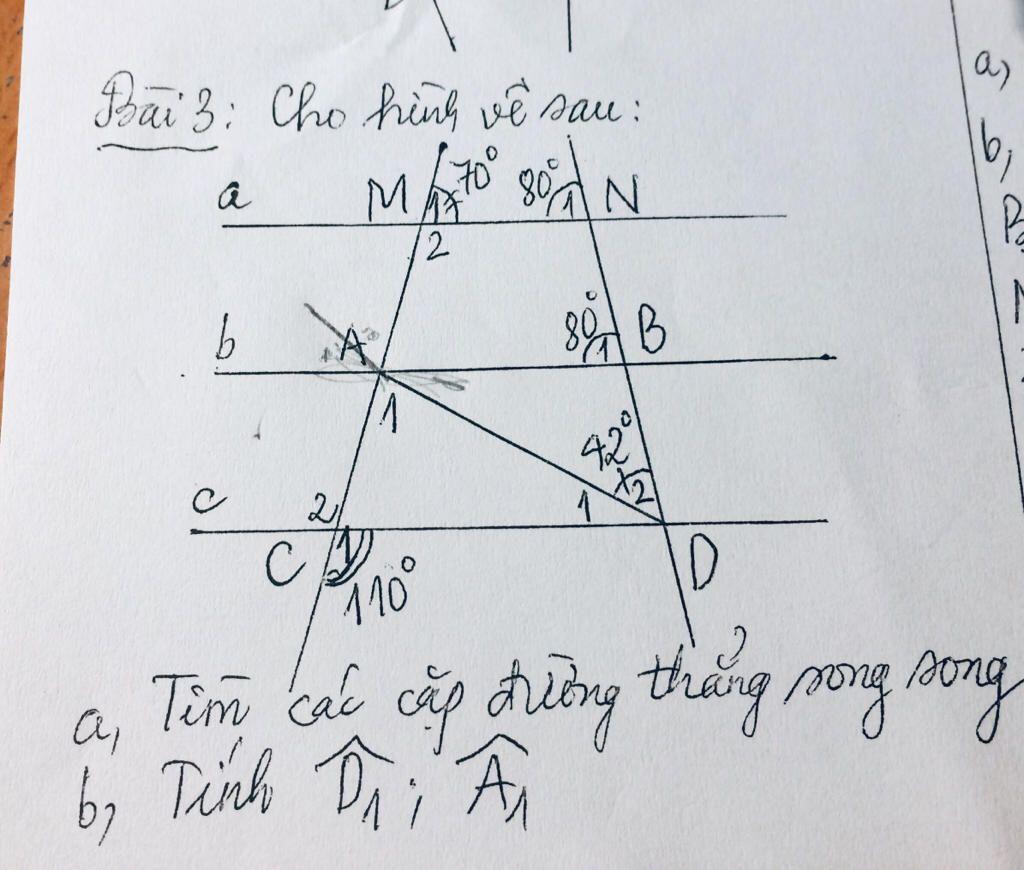 Bài 3: Cho hình vẽ sau:
a,
b,
a M 1 70° 80° 1 N
2
b A 80° 1 B
1
42°
c 2 1 2
C 1 110° D
a, Tìm các cặp đường thẳng song song
b, Tính D̂₁; Â₁